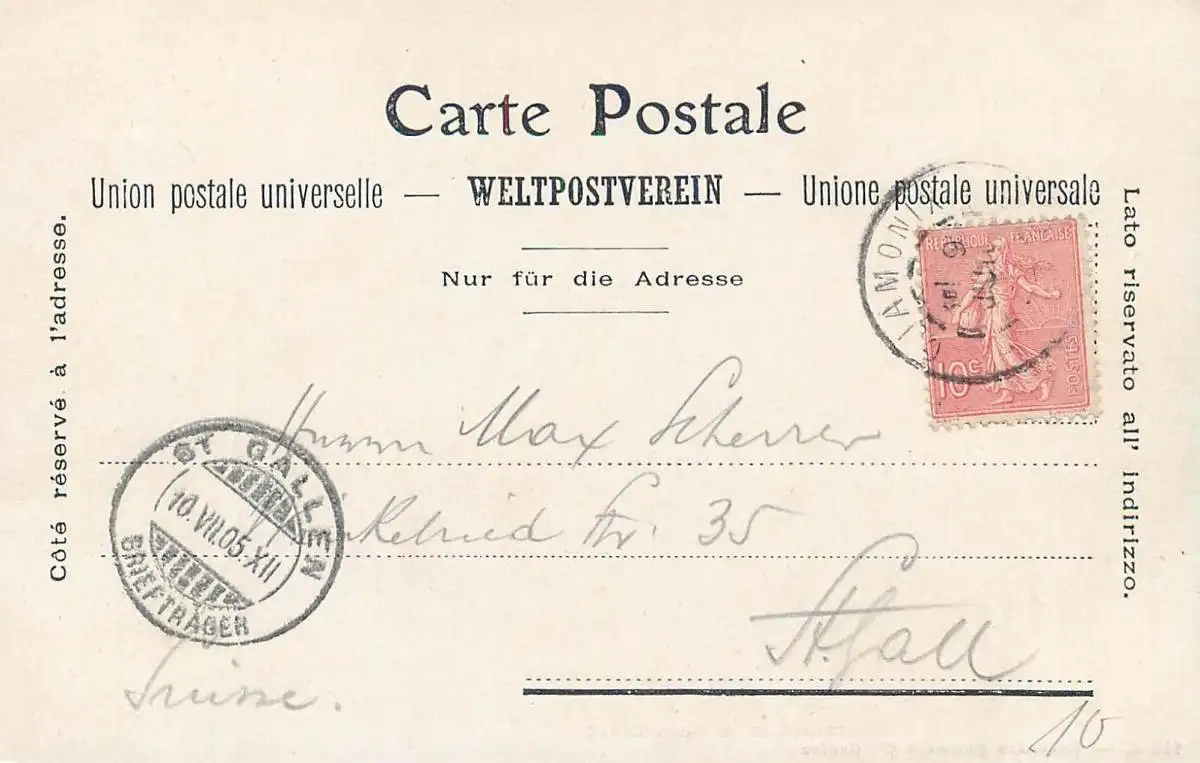 Carte Postale
Union postale universelle — WELTPOSTVEREIN — Unione postale universale
Nur für die Adresse
Côté réservé à l'adresse.
Lato riservato all' indirizzo.
REPUBLIQUE FRANÇAISE
10c
POSTES
Herrn Max Scherrer
Str. 35
St. Gall
Suisse.
ST GALLEN
10.VII.05.XII
BRIEFTRÄGER
10